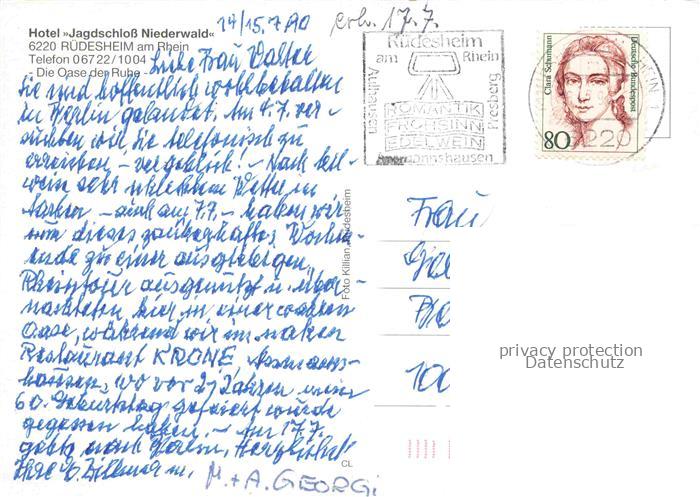 14/15.7.90
erh. 17.7.
Hotel »Jagdschloß Niederwald«
6220 RÜDESHEIM am Rhein
Telefon 06722/1004
Die Oase der Ruhe
Liebe Frau Walter
Sie sind hoffentlich wohlbehalten
in Berlin gelandet. Am 4.7. ver-
suchten wir, Sie telefonisch zu
erreichen – vergeblich! – Nach
sehr schlechtem Wetter in
– auch am 7.7. – haben wir
nun dieses zauberhafte Wochen-
ende zu einer ausgiebigen
Rheintour ausgenutzt u. über-
nachteten hier in einer wahren
Oase, während wir im nahen
Restaurant KRONE Assmanns-
hausen, wo vor 2 Jahren mein
60. Geburtstag gefeiert wurde
gegessen haben. – Am 17.7.
geht's nach Berlin, Herzlichst
Ihre
M.+A. GEORGI
Rüdesheim
am Rhein
Aulhausen
Presberg
ROMANTIK
FROHSINN
EDELWEIN
Assmannshausen
Clara Schumann
Deutsche Bundespost
80
6220
Foto Killian Rüdesheim
CL
Frau
100
privacy protection
Datenschutz